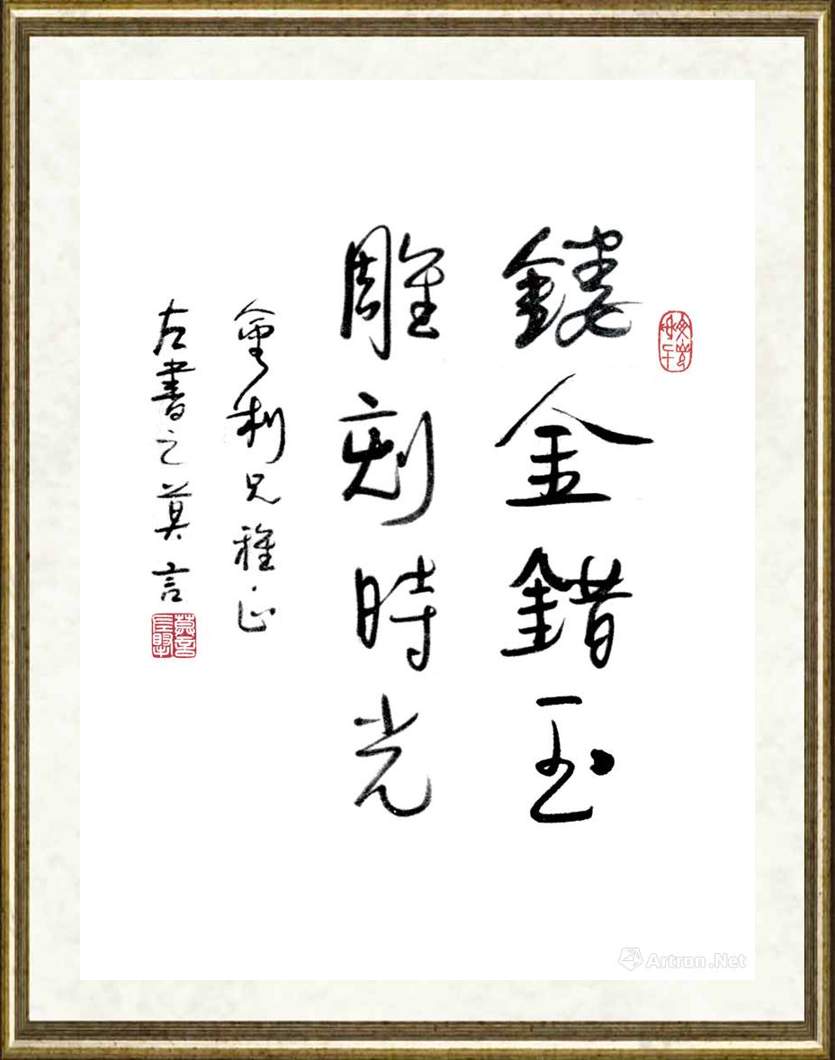 鏤金錯玉
雕刻時光
會利兄雅正
左書之莫言
Artron.Net